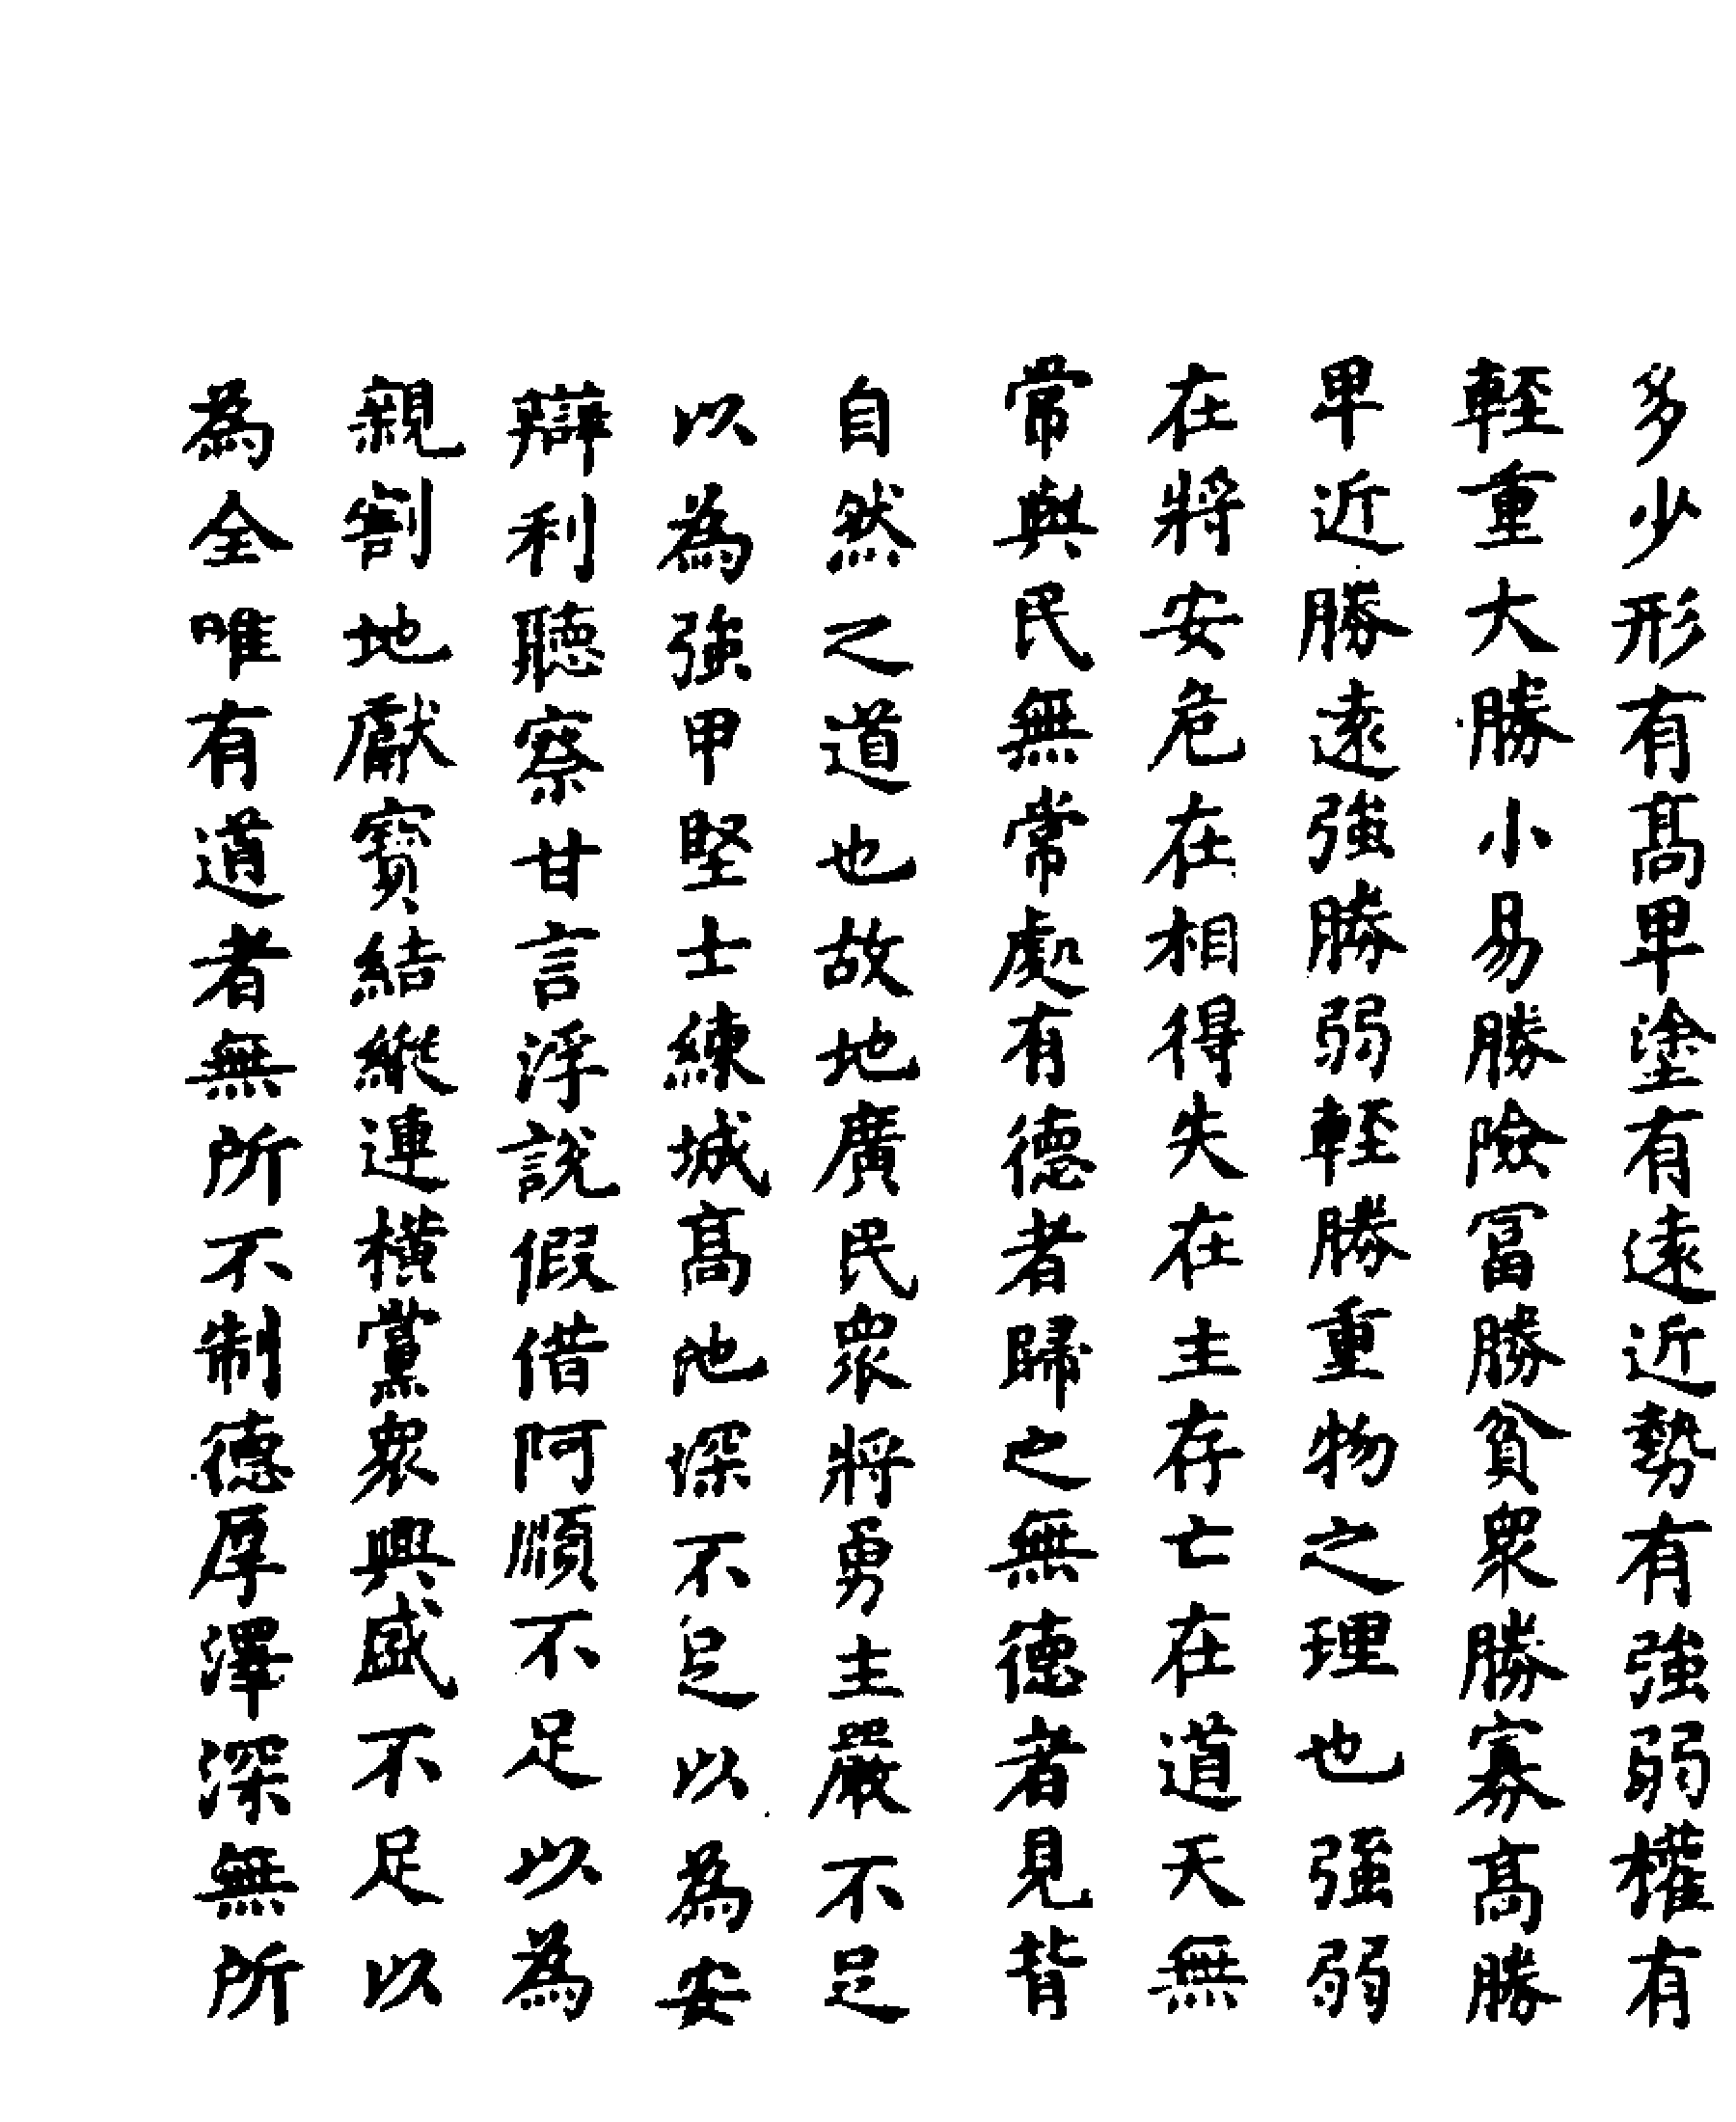 多少形有髙卑塗有逺近勢有強弱權有
輕重大勝小易勝險冨勝貧衆勝寡髙勝
卑近勝逺強勝弱輕勝重物之理也強弱
在將安危在相得失在主存亡在道天無
常與民無常處有德者歸之無德者見背
自然之道也故地廣民衆將勇主嚴不足
以為強甲堅士練城髙池深不足以為安
辯利聽察甘言浮說假借阿順不足以為
親割地獻寳結縱連橫黨衆興盛不足以
為全唯有道者無所不制德厚澤深無所